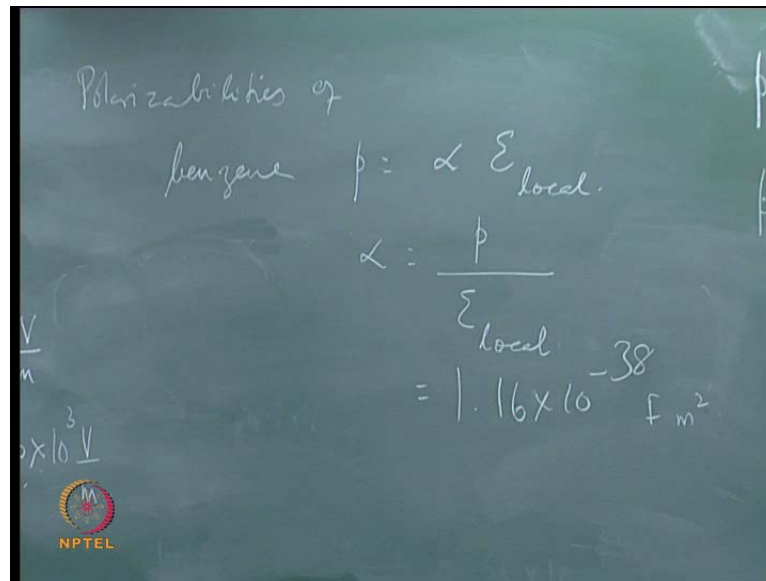 Polarizabilities of
benzene p = α Ɛ local.
α = p / Ɛ local
= 1.16 × 10⁻³⁸ F m²
V
m
× 10³ V
M
NPTEL
p
p